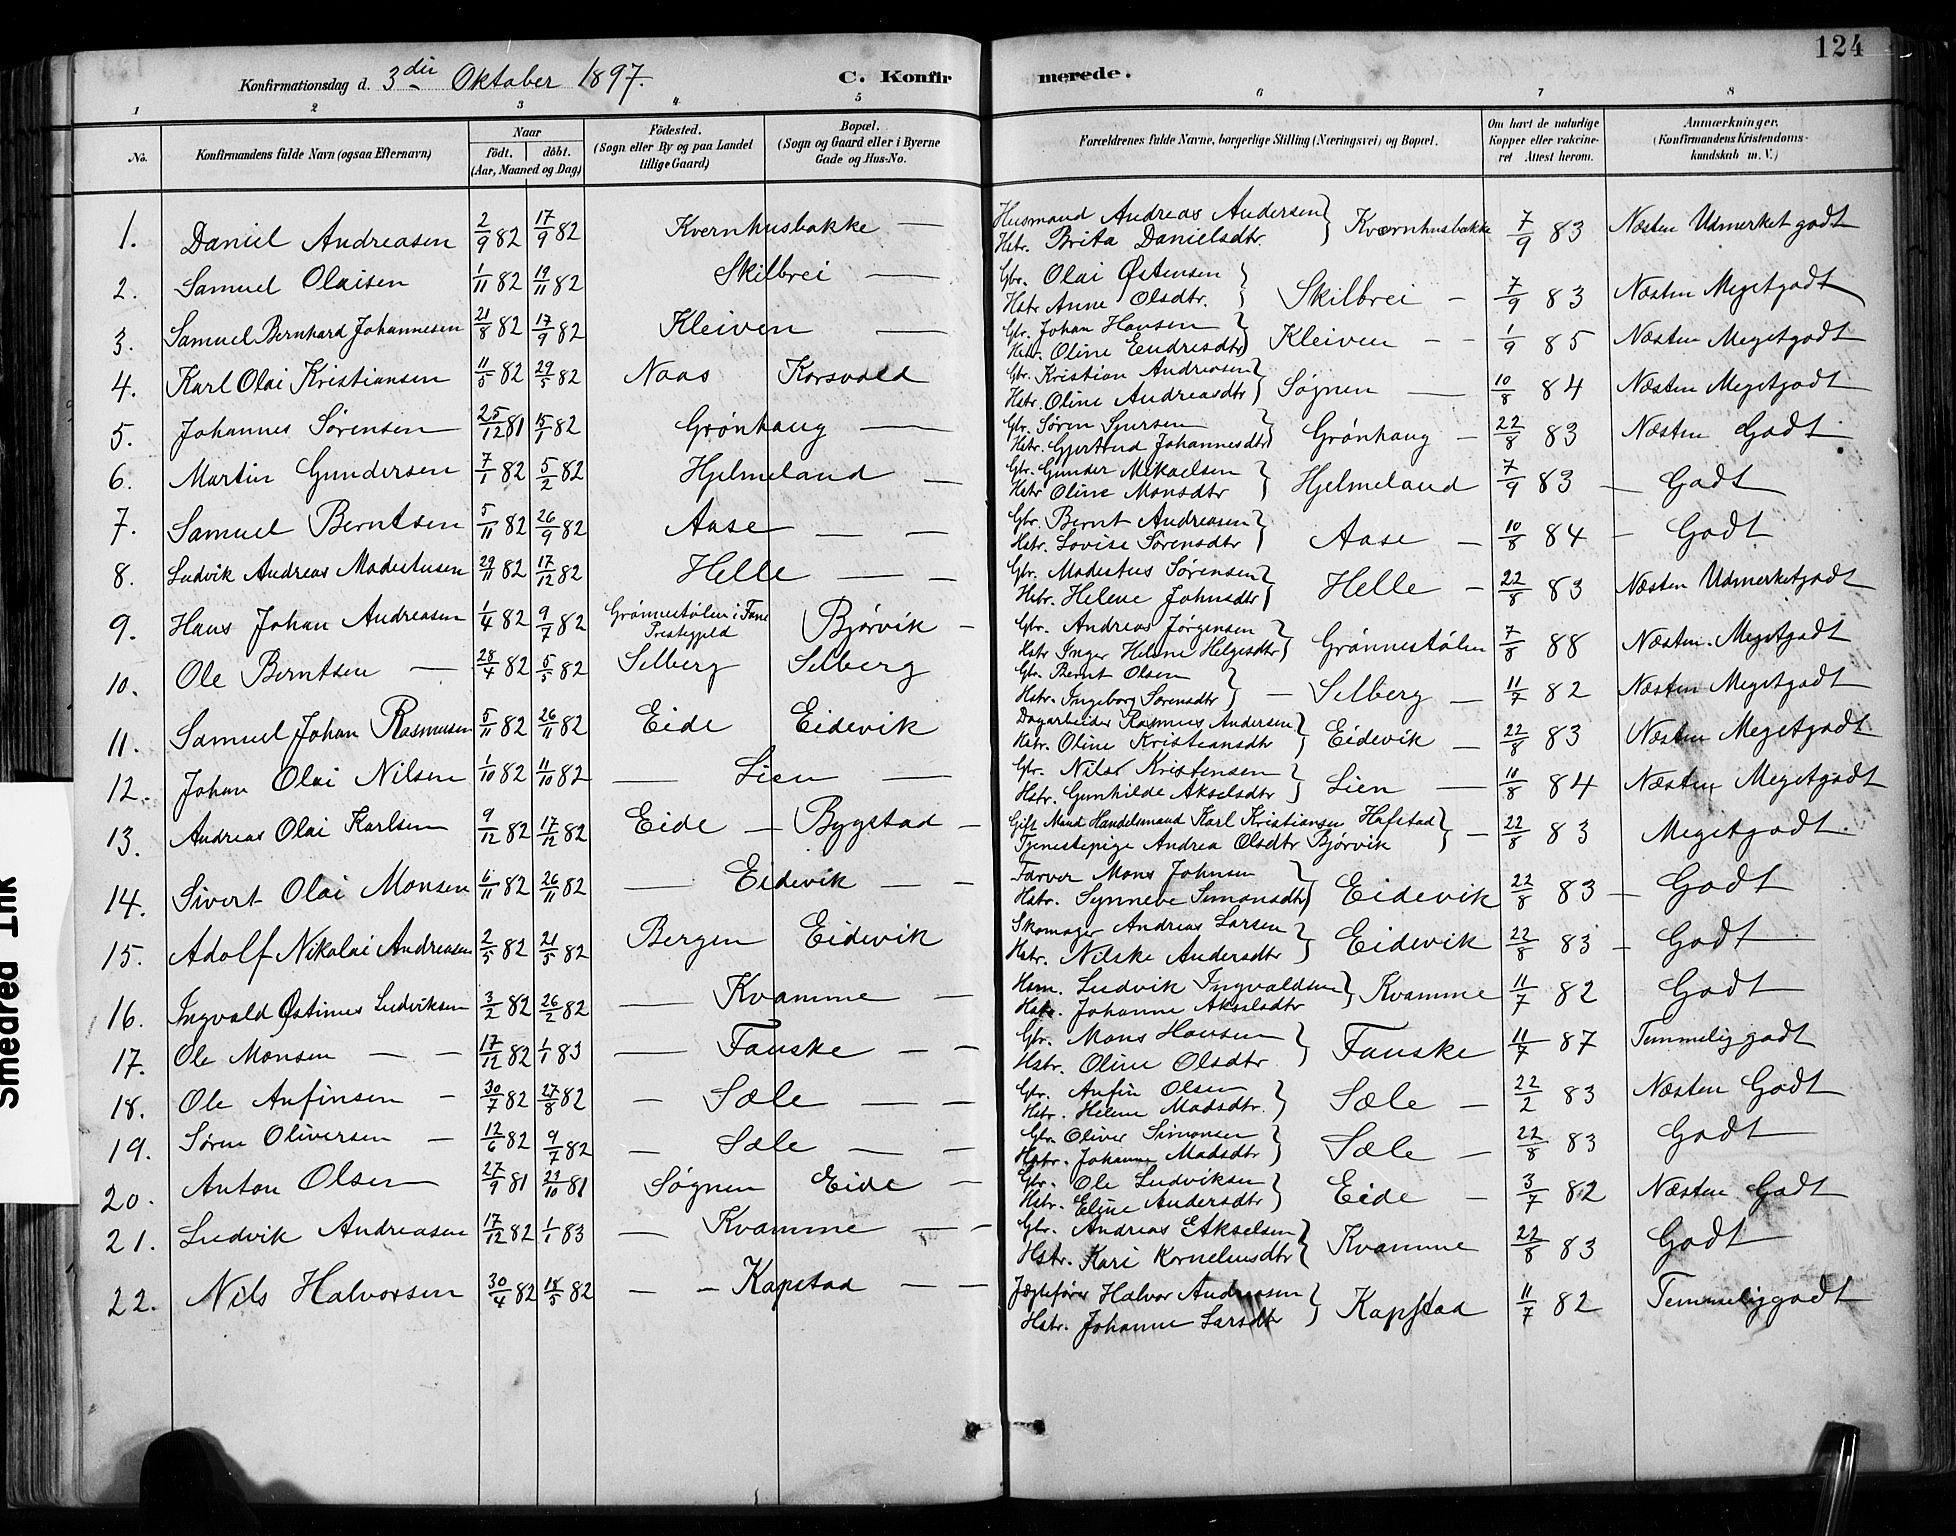 124
Konfirmationsdag d. 3die Oktober 1897.
C. Konfir merede.
1 2 3 4 5 6 7 8
No. Konfirmandens fulde Navn (ogsaa Efternavn) Naar födt. döbt. (Aar, Maaned og Dag) Födested. (Sogn eller By og paa Landet tillige Gaard) Bopæl. (Sogn og Gaard eller i Byerne Gade og Hus-No. Forældrenes fulde Navne, borgerlige Stilling (Næringsvei) og Bopæl. Om havt de naturlige Kopper eller vakcineret Attest herom. Anmærkninger. (Konfirmandens Kristendomskundskab m. V.)
1. Daniel Andreasen 2/9 82 17/9 82 Kvernhusbakke — Husmand Andreas Andersen Hstr. Brita Danielsdtr. } Kvernhusbakke 7/9 83 Næsten Udmerket godt
2. Samuel Olaisen 1/11 82 19/11 82 Skilbrei — Gbr. Olai Østensen Hstr Anne Olsdtr. } Skilbrei — 7/9 83 Næsten Megetgodt
3. Samuel Bernhard Johannesen 21/8 82 17/9 82 Kleiven — Gbr. Johan Hansen Hstr. Oline Endresdtr } Kleiven - - 1/9 85 Næsten Megetgodt
4. Karl Olai Kristiansen 11/5 82 29/5 82 Naas Korsvold Gbr. Kristian Andreasen Hstr. Oline Andreasdtr } Søgnen — 10/8 84 Næsten Megetgodt
5. Johannes Sørensen 25/12 81 15/1 82 Grønhaug — Gbr. Søren Sjursen Hstr. Gjertrud Johannesdtr } Grønhaug - 22/8 83 Næsten Godt
6. Martin Gundersen 7/1 82 5/2 82 Hjelmeland — Gbr. Gunder Mikaelsen Hstr Oline Monsdtr } Hjelmeland 7/9 83 — Godt
7. Samuel Berntsen 5/11 82 26/9 82 Aase — — Gbr. Bernt Andreasen Hstr. Lovise Sørensdtr } Aase — 10/8 84 - Godt
8. Ludvik Andreas Modestusen 29/11 82 17/12 82 Helle — — Gbr. Modestus Sørensen Hstr. Helene Johnsdtr } Helle - 22/8 83 Næsten Udmerketgodt
9. Hans Johan Andreasen 1/4 82 9/7 82 Grønnestølen i Fane Prestegjeld Bjørvik - Gbr. Andreas Jørgensen Hstr Inger Helene Helgesdtr } Grønnestølen 7/8 88 Næsten Megetgodt
10. Ole Berntsen — 28/4 82 5/5 82 Selberg Selberg Gbr. Bernt Olsen Hstr. Ingeborg Sørensdtr } - Selberg — 11/7 82 Næsten Megetgodt
11. Samuel Johan Rasmusen 5/11 82 26/11 82 Eide Eidevik Dagarbeider Rasmus Andersen Hstr. Oline Kristiansdtr } Eidevik — 22/8 83 Næsten Megetgodt
12. Johan Olai Nilsen 1/10 82 11/10 82 — Lien — Gbr. Nils Kristensen Hstr. Gunhilde Akselsdtr } Lien — 10/8 84 Næsten Megetgodt
13. Andreas Olai Karlsen 9/12 82 17/12 82 Eide — Bygstad - Gift Mand Handelsmand Karl Kristiansen Hafstad Tjenestepige Andrea Olsdtr Bjørvik } — 22/8 83 Megetgodt
14. Sivert Olai Monsen 6/11 82 26/11 82 — Eidevik — - Farver Mons Johnsen Hstr. Synneve Simonsdtr } Eidevik 22/8 83 - Godt
15. Adolf Nikolai Andreasen 2/5 82 21/5 82 Bergen Eidevik Skomager Andreas Larsen Hstr. Nilske Andersdtr } Eidevik 22/8 83 - Godt
16. Ingvald Østinus Ludviksen 3/2 82 26/2 82 — Kvamme - Hsm. Ludvik Ingvaldsen Hstr. Johanne Akselsdtr } Kvamme 11/7 82 Godt
17. Ole Monsen — — 17/12 82 1/1 83 — Fauske — - Gbr. Mons Hansen Hstr. Oline Olsdtr } Fauske 11/7 87 Temmelig godt
18. Ole Anfinsen - 30/7 82 27/8 82 — Sæle — — Gbr. Anfin Olsen Hstr. Helene Madsdtr. } Sæle - 22/2 83 Næsten Godt
19. Søren Oliversen — 12/6 82 9/7 82 — Sæle — - Gbr. Oliver Simonsen Hstr. Johanne Madsdtr } Sæle — 22/8 83 Godt
20. Anton Olsen 27/9 81 29/10 81 Søgnen Eide - Gbr. Ole Ludviksen Hstr. Eline Andersdtr } Eide - 3/7 82 Næsten Godt
21. Ludvik Andreasen 17/12 82 1/1 83 — Kvamme — - Gbr. Andreas E Akselsen Hstr. Kari Korneliusdtr } Kvamme 22/8 83 Godt
22. Nils Halvorsen 30/4 82 18/5 82 - - Kapstad — - Jægtefører Halvor Andreasen Hstr. Johanne Larsdtr } Kapstad 11/7 82 Temmeliggodt
Smedred Ink